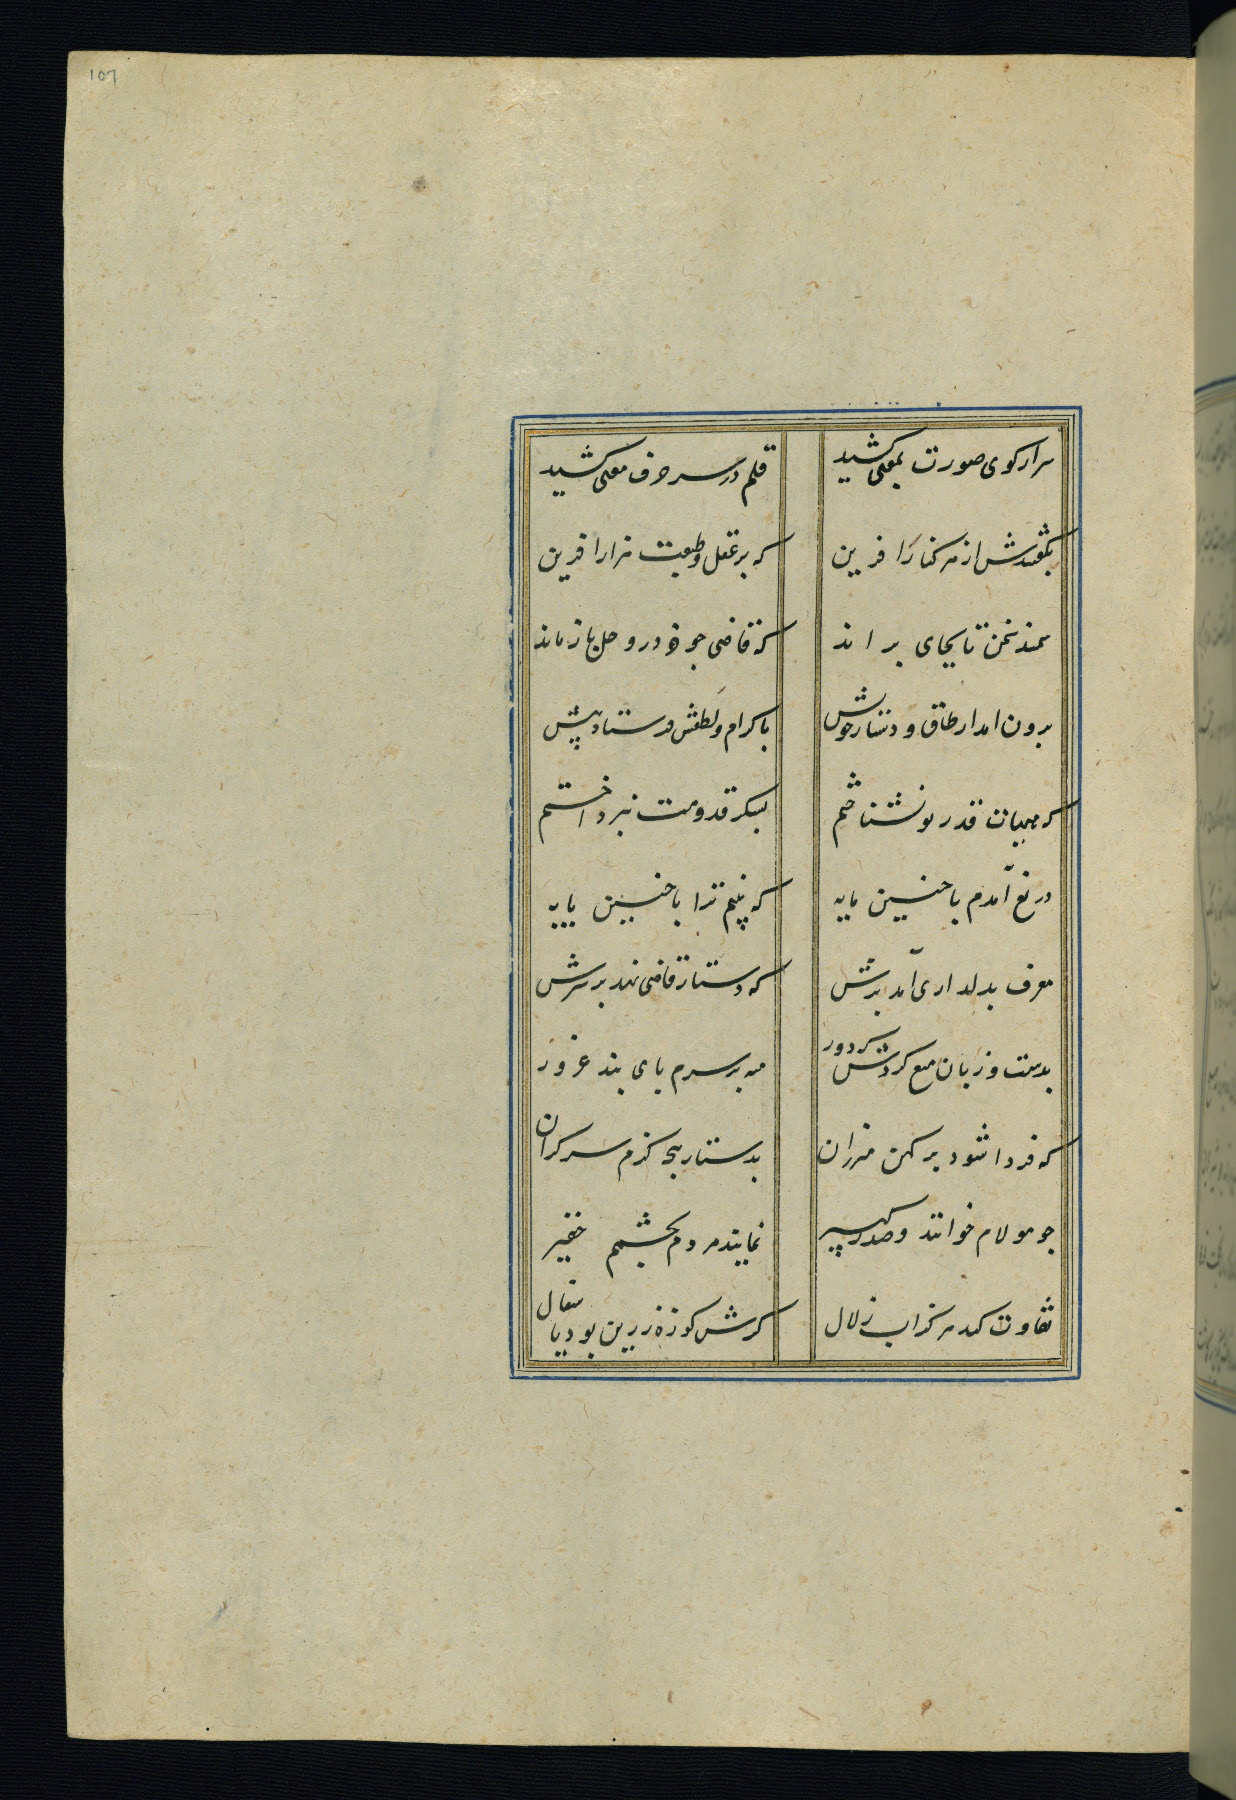 107
سر از کوی صورت بمعنی کشید قلم در سر حرف معنی کشید
بگفتندش از هر کنار آفرین که بر عقل و طبعت هزار آفرین
سمند سخن تا بجای براند که قاضی چو خر در وحل باز ماند
برون امد از طاق و دستار خویش باکرام و لطفش فرستاد پیش
که هیهات قدر تو نشناختم بشکر قدومت نپرداختم
دریغ آمدم با چنین مایه که بینم ترا با چنین پایه
معرف بدلداری آمد برش که دستار قاضی نهد بر سرش
بدست و زبان منع کردش که دور منه بر سرم پای بند غرور
که فردا شود بر کهن میزران بدستار پنجه گزم سر گران
چو مولام خوانند و صدر کبیر نمایند مردم بچشمم حقیر
تفاوت کند هرگز اب زلال گرش کوزه زرین بود یا سفال